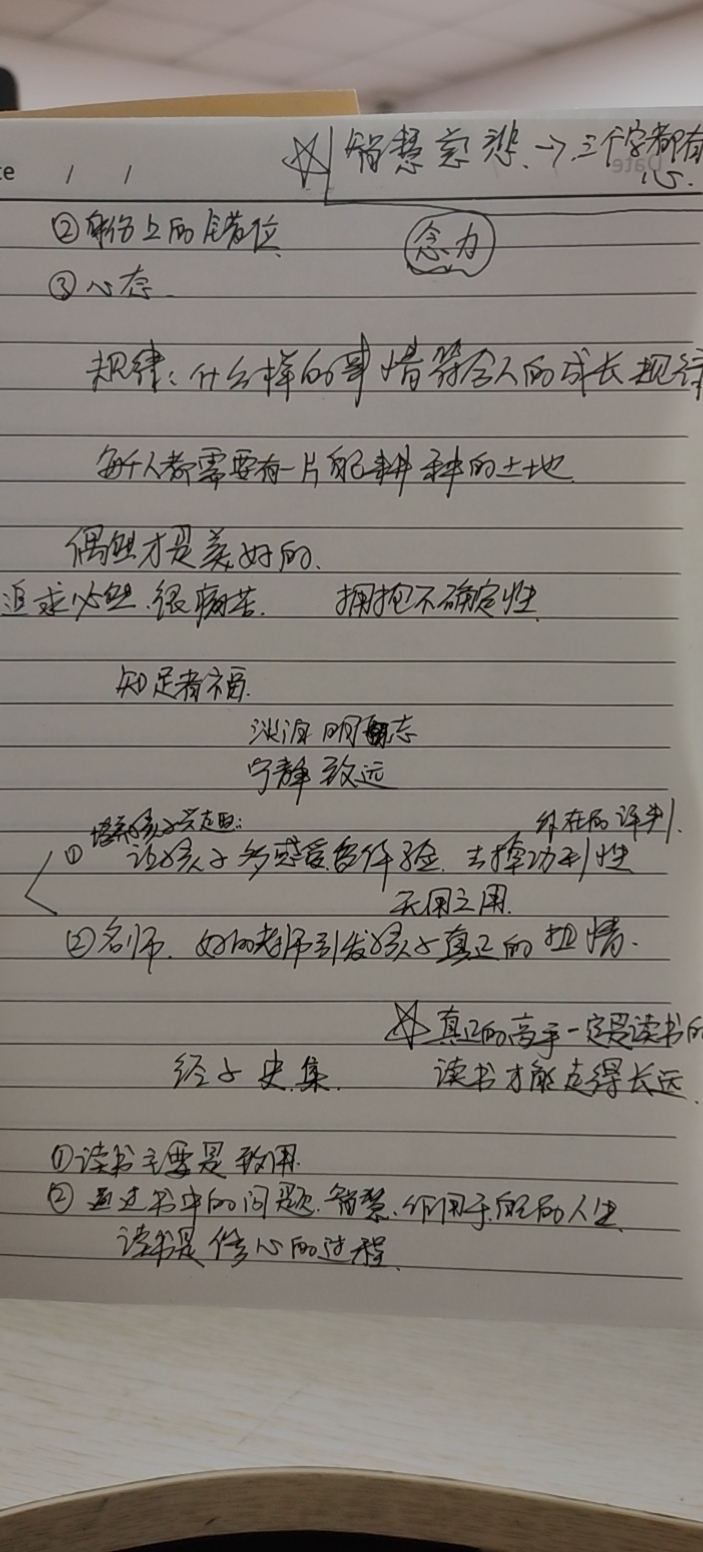 ☆ 智慧慈悲 → 三个字都有
心.
te / / Date
② 身份上的错位
念力
③ 心态
规律：什么样的事情符合人的成长规律
每个人都需要有一片自己耕种的土地
偶然才是美好的.
追求必然.很痛苦. 拥抱不确定性
知足者福.
淡泊明志
宁静致远
培养孩子兴趣： 外在的评判.
① 让孩子多感受多体验 去掉功利性
无用之用.
② 名师. 好的老师引发孩子真正的热情.
☆ 真正的高手一定是读书的
经子史集. 读书才能走得长远.
① 读书主要是致用.
② 通过书中的问题.智慧.作用于自己的人生
读书是修心的过程.